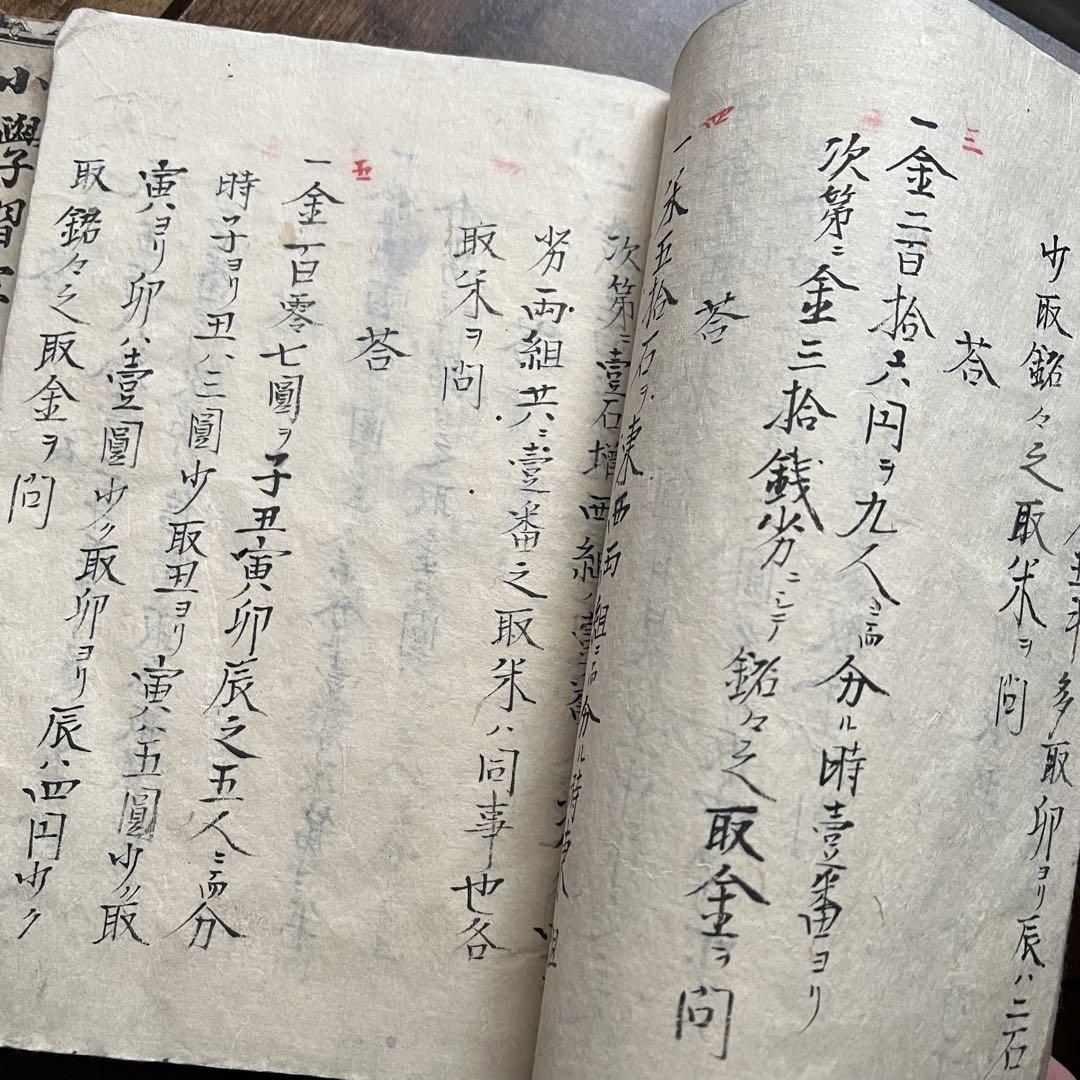 多取卯ヨリ辰ハ二石
少取銘々之取米ヲ問
答
三
一金二百拾六円ヲ九人ニ而分ル時壹番ヨリ
次第ニ金三拾銭劣ニシテ銘々之取金ヲ問
答
四
一米五拾石ヲ東西両組ニ而分ル時東
次第ニ壹石增西組ノ壹番
劣両組共ニ壹番之取米ハ同事也各
取米ヲ問
答
五
一金百零七圓ヲ子丑寅卯辰之五人ニ而分
時子ヨリ丑ハ三圓少取丑ヨリ寅ハ五圓少ク取
寅ハヨリ卯ハ壹圓少ク取卯ヨリ辰ハ四円少ク
取銘々之取金ヲ問
小學習字